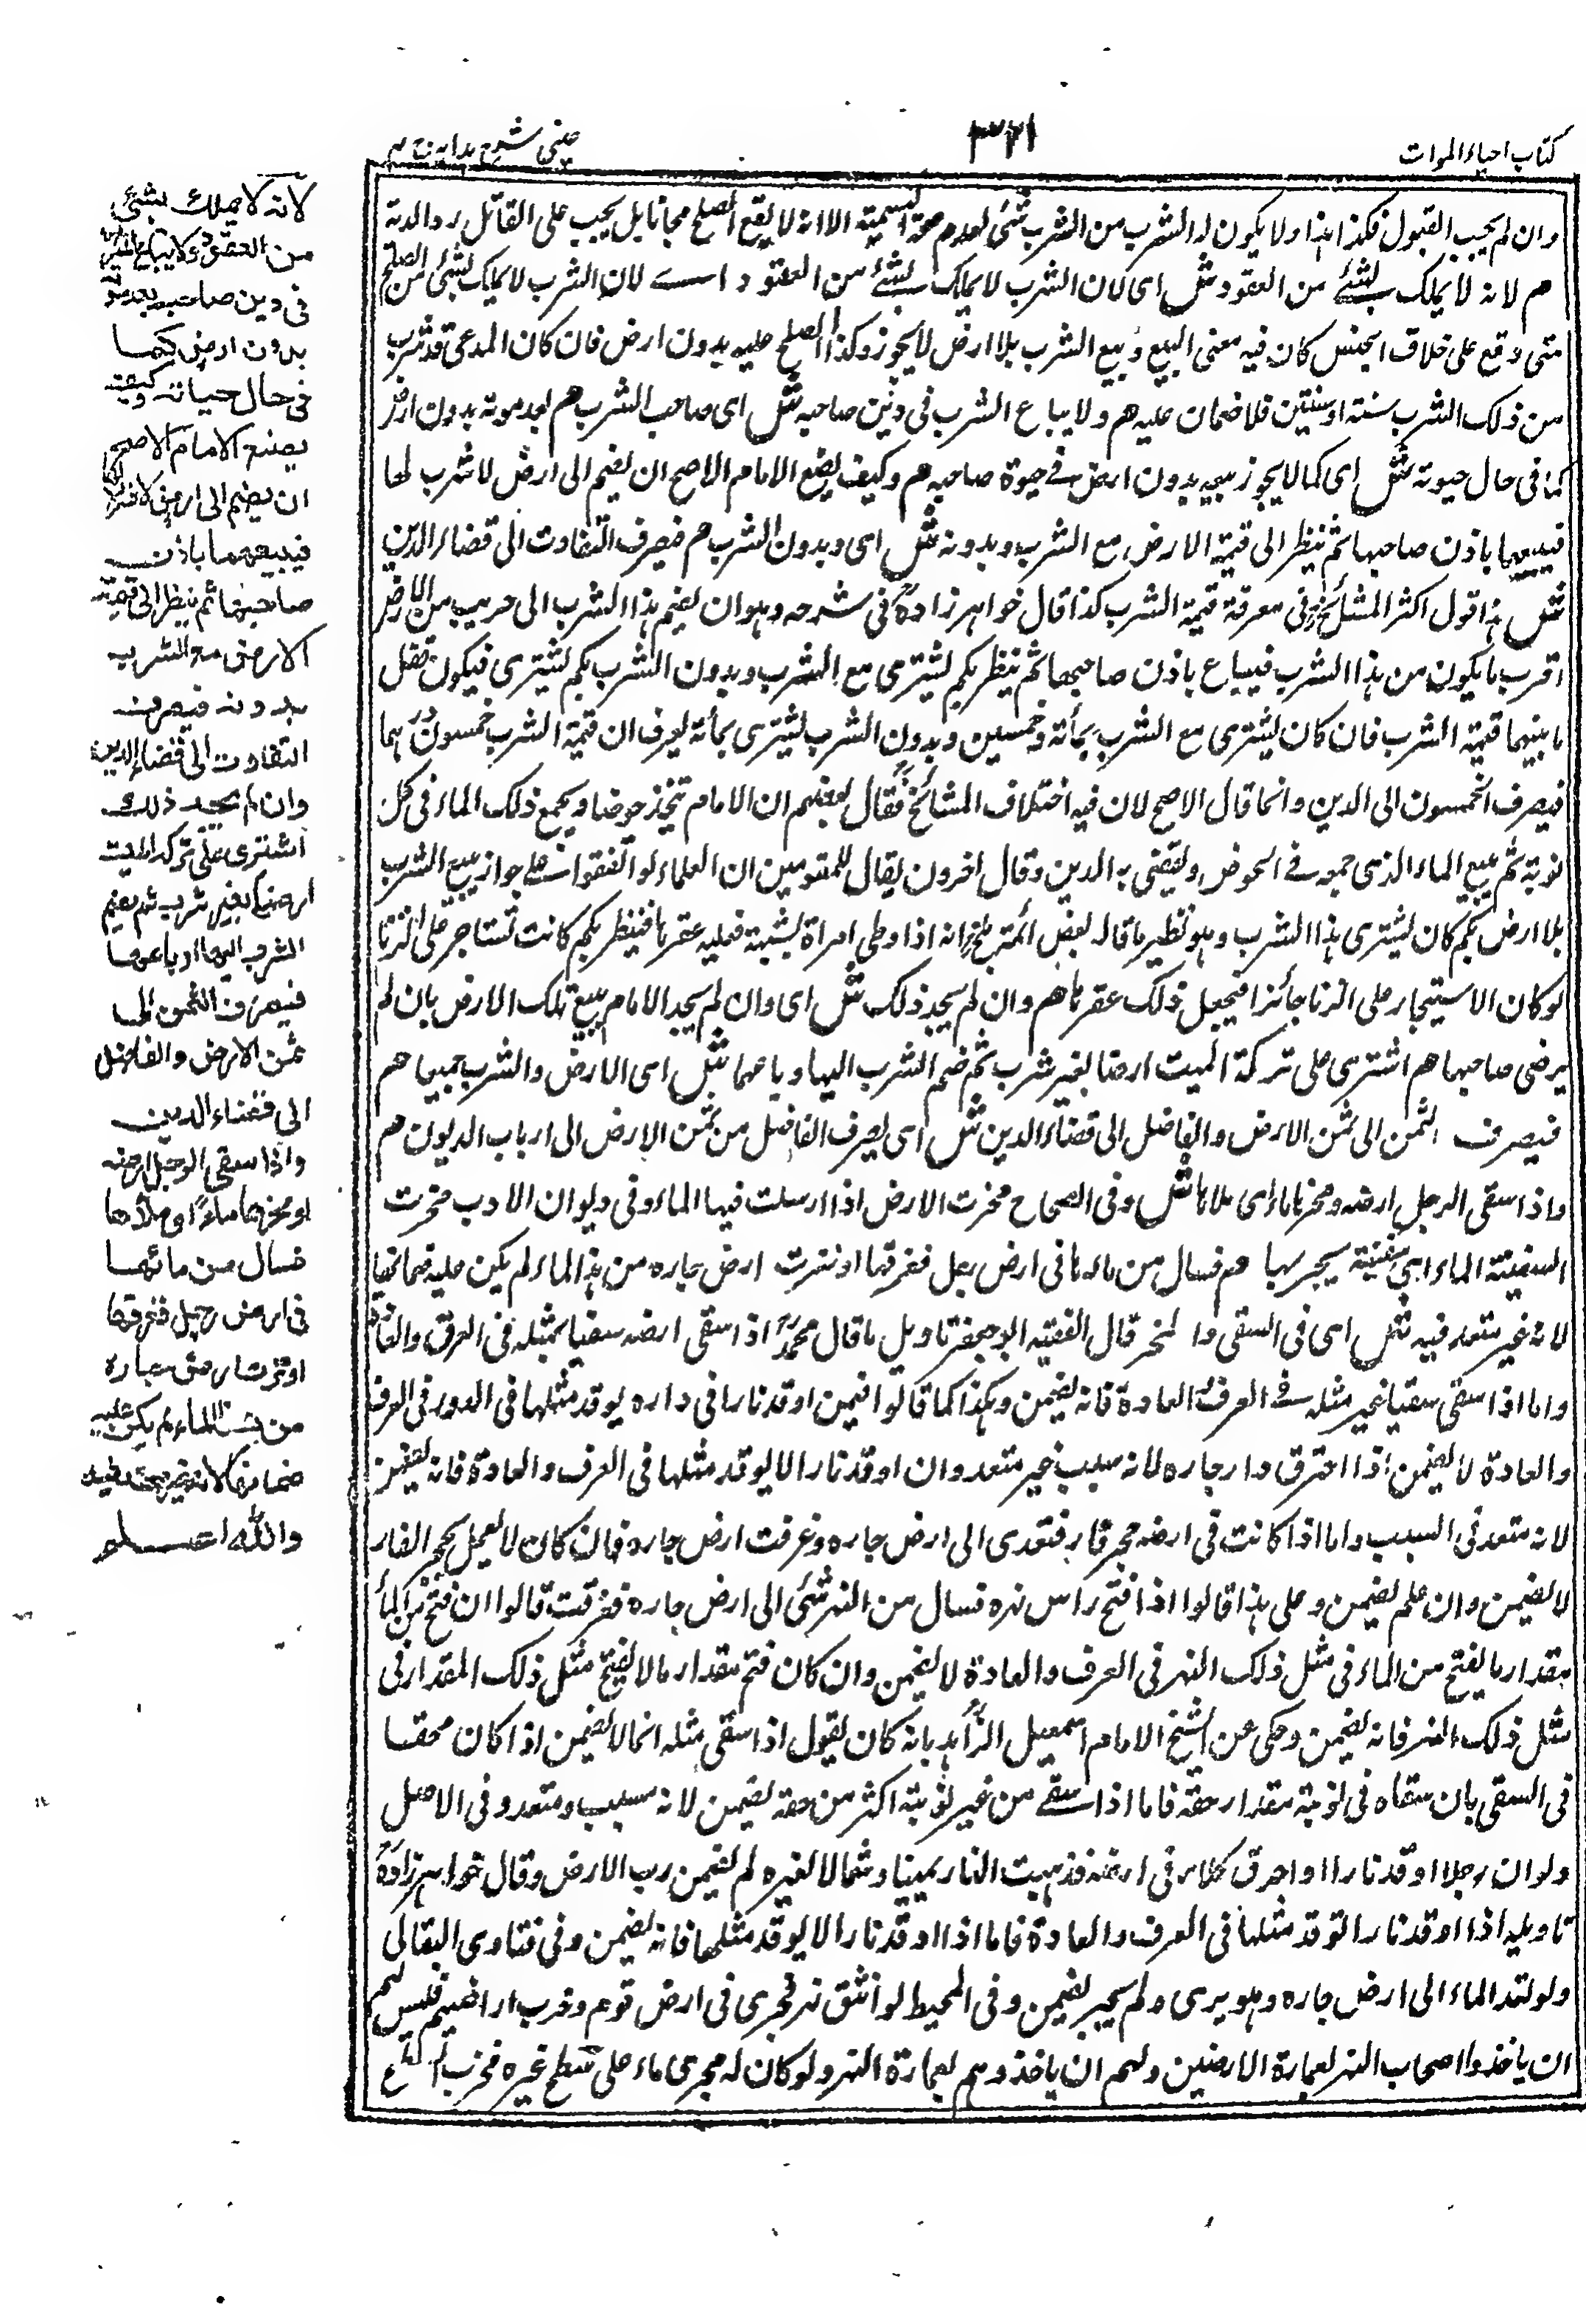 كتاب احياء الموات
٣٢١
عينى شرح هدايه ج ٤
وان لم يجب القبول فكذا هذا ولا يكون له الشرب من الشرب شئ لعدم صحة التسمية الا انه لا يقع الصلح مجانا بل يجب على القاتل رد الدية
م لانه لا يملك بشئ من العقود ش اى لان الشرب لا يملك بشئ من العقود لان الشرب لا يملك بشئ من الصلح
متى وقع على خلاف الجنس كان فيه معنى البيع وبيع الشرب بلا ارض لا يجوز وكذا الصلح عليه بدون ارض فان كان المدعى قد شرب
من ذلك الشرب سنة او سنتين فلا ضمان عليه م ولا يباع الشرب فى دين صاحبه ش اى صاحب الشرب م بعد موته بدون ارض
كما فى حال حيوته ش اى كما لا يجوز بيعه بدون ارض فى حيوة صاحبه م وكيف يصنع الامام الاصح ان يضم الى ارض لا شرب لها
فيبيعها باذن صاحبها ثم ينظر الى قيمة الارض مع الشرب وبدونه ش اى وبدون الشرب م فيصرف التفاوت الى قضاء الدين
ش هذا قول اكثر المشائخ فى معرفة قيمة الشرب كذا قال خواهر زاده فى شرحه وهو ان يضم هذا الشرب الى جريب من الارض
اقرب ما يكون من هذا الشرب فيباع باذن صاحبها ثم ينظر بكم يشترى مع الشرب وبدون الشرب بكم يشترى فيكون فضل
ما بينهما قيمة الشرب فان كان يشترى مع الشرب بمأئة وخمسين وبدون الشرب يشترى بمأئة يعرف ان قيمة الشرب خمسون درهما
فيصرف الخمسون الى الدين وانما قال الاصح لان فيه اختلاف المشائخ فقال بعضهم ان الامام يتخذ حوضا ويجمع ذلك الماء فى كل
نوبة ثم يبيع الماء الذى جمعه فى الحوض ويقضى به الدين وقال اخرون يقال للمقومين ان العلماء لو اتفقوا على جواز بيع الشرب
بلا ارض بكم كان يشترى هذا الشرب وهو نظير ما قاله بعض ائمة بلخ انه اذا وطى امراة بشبهة فعليه عقرها فينظر بكم كانت تستاجر على الزنا
لو كان الاستيجار على الزنا جائزا فيجعل ذلك عقرها م وان لم يجد ذلك ش اى وان لم يجد الامام بيع تلك الارض بان لم
يرضى صاحبها م اشترى على تركة الميت ارضا بغير شرب ثم ضم الشرب اليها وباعهما ش اى الارض والشرب جميعا م
فيصرف الثمن الى ثمن الارض والفاضل الى قضاء الدين ش اى يصرف الفاضل من ثمن الارض الى ارباب الديون م
واذا سقى الرجل ارضه ومخرها ماء اى ملاها ش وفى الصحاح مخرت الارض اذا ارسلت فيها الماء وفى ديوان الادب مخرت
السفينة الماء اى سفينة يجر بها م فسال من مائها فى ارض رجل فغرقها او نزت ارض جاره من هذا الماء لم يكن عليه ضمانها
لانه غير متعد فيه ش اى فى السقى والمخر قال الفقيه ابو جعفر تاويل ما قال محمد اذا سقى ارضه سقيا بمثله فى العرف والعادة
واما اذا سقى سقيا غير مثله فى العرف والعادة فانه يضمن وهكذا كما قالوا فيمن اوقد نارا فى داره يوقد مثلها فى الدور فى العرف
والعادة لا يضمن اذا احترق دار جاره لانه سبب غير متعد وان اوقد نارا لا يوقد مثلها فى العرف والعادة فانه يضمن
لانه متعد فى السبب واما اذا كانت فى ارضه جحر فار فتعدى الى ارض جاره وغرقت ارض جاره فان كان لا يعمل بجحر الفار
لا يضمن وان علم يضمن وعلى هذا قالوا اذا فتح راس نهره فسال من النهر شئ الى ارض جاره فغرقت قالوا ان فتح من الماء
مقدار ما يفتح من الماء فى مثل ذلك النهر فى العرف والعادة لا يضمن وان كان فتح مقدار ما لا يفتح مثل ذلك المقدار فى
مثل ذلك النهر فانه يضمن وحكى عن الشيخ الامام اسمعيل الزاهد بانه كان يقول اذا سقى مثله انما لا يضمن اذا كان محقا
فى السقى بان سقاه فى نوبته مقدار حقه فاما اذا سقى من غير نوبته اكثر من حقه يضمن لانه مسبب ومتعد وفى الاصل
ولو ان رجلا اوقد نارا او احرق كلاء فى ارضه فذهبت النار يمينا وشمالا لغيره لم يضمن رب الارض وقال خواهر زاده
تاويله اذا اوقد نارا توقد مثلها فى العرف والعادة فاما اذا اوقد نارا لا يوقد مثلها فانه يضمن وفى فتاوى البقالى
ولو تعد الماء الى ارض جاره وهو يرى ولم يجبر يضمن وفى المحيط لو انشق نهر فجرى فى ارض قوم وخرب اراضيهم فليس لهم
ان ياخذوا اصحاب النهر بعمارة الارضين ولهم ان ياخذوهم بعمارة النهر ولو كان له مجرى ماء على سطح غيره فخرب
لانه لا يملك بشئ
من العقود ولا يباع الشرب
فى دين صاحبه بعد موته
بدون ارض كما
فى حال حياته وكيف
يصنع الامام الاصح
ان يضم الى ارض لا شرب لها
فيبيعهما باذن
صاحبها ثم ينظر الى قيمة
الارض مع الشرب
بدونه فيصرف
التفاوت الى قضاء الدين
وان لم يجد ذلك
اشترى على تركة الميت
ارضا بغير شرب ثم يضم
الشرب اليها وباعهما
فيصرف الثمن الى
ثمن الارض والفاضل
الى قضاء الدين
واذا سقى الرجل ارضه
او مخرها ماء اى ملأها
فسال من مائها
فى ارض رجل فغرقها
او نزت ارض جاره
من هذا الماء لم يكن عليه
ضمانها لانه غير متعد فيه
والله اعلم